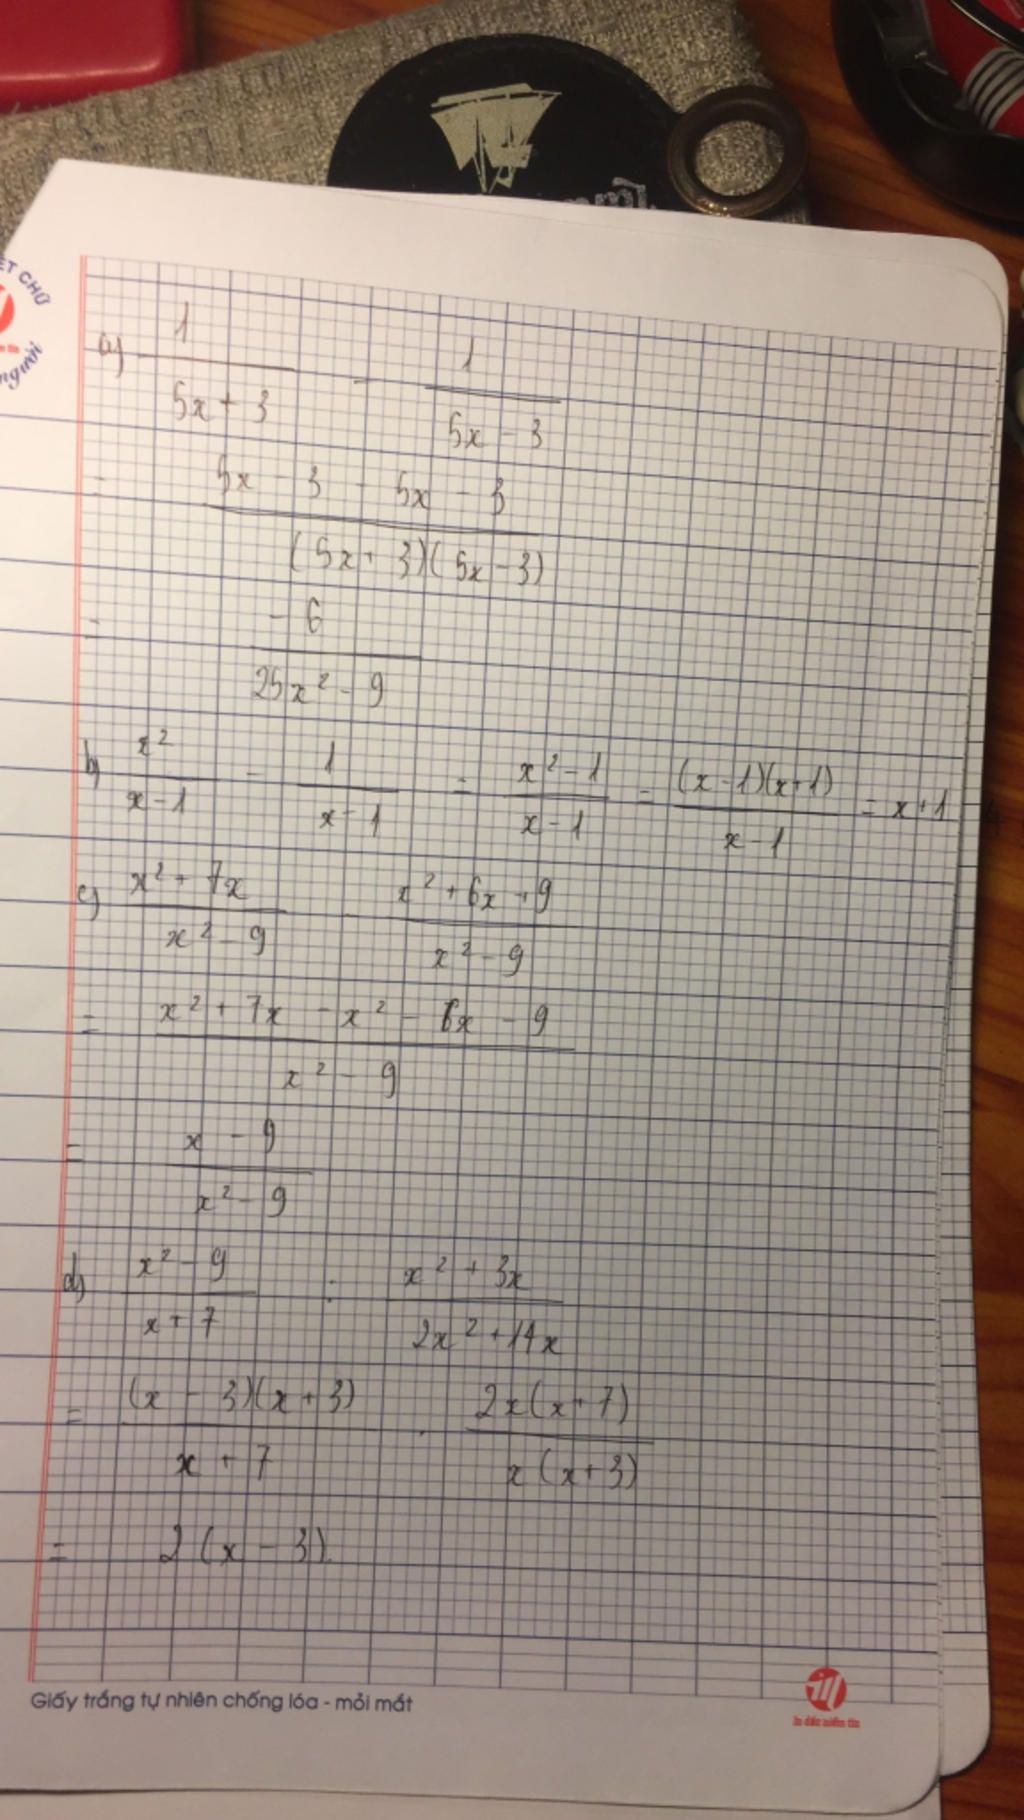 ẾT CHỮ
người
a) 1/(5x + 3) - 1/(5x - 3)
= (5x - 3 - 5x - 3)/((5x + 3)(5x - 3))
= - 6/(25x² - 9)
b) x²/(x - 1) - 1/(x - 1) = (x² - 1)/(x - 1) = ((x - 1)(x + 1))/(x - 1) = x + 1
c) (x² + 7x)/(x² - 9) - (x² + 6x + 9)/(x² - 9)
= (x² + 7x - x² - 6x - 9)/(x² - 9)
= (x - 9)/(x² - 9)
d) (x² - 9)/(x + 7) : (x² + 3x)/(2x² + 14x)
= ((x - 3)(x + 3))/(x + 7) . (2x(x + 7))/(x(x + 3))
= 2(x - 3).
Giấy trắng tự nhiên chống lóa - mỏi mắt